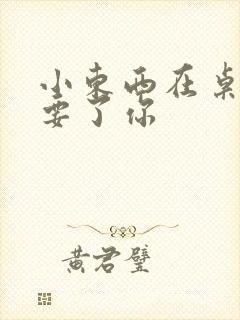 小东西在桌
要了你
黄君璧